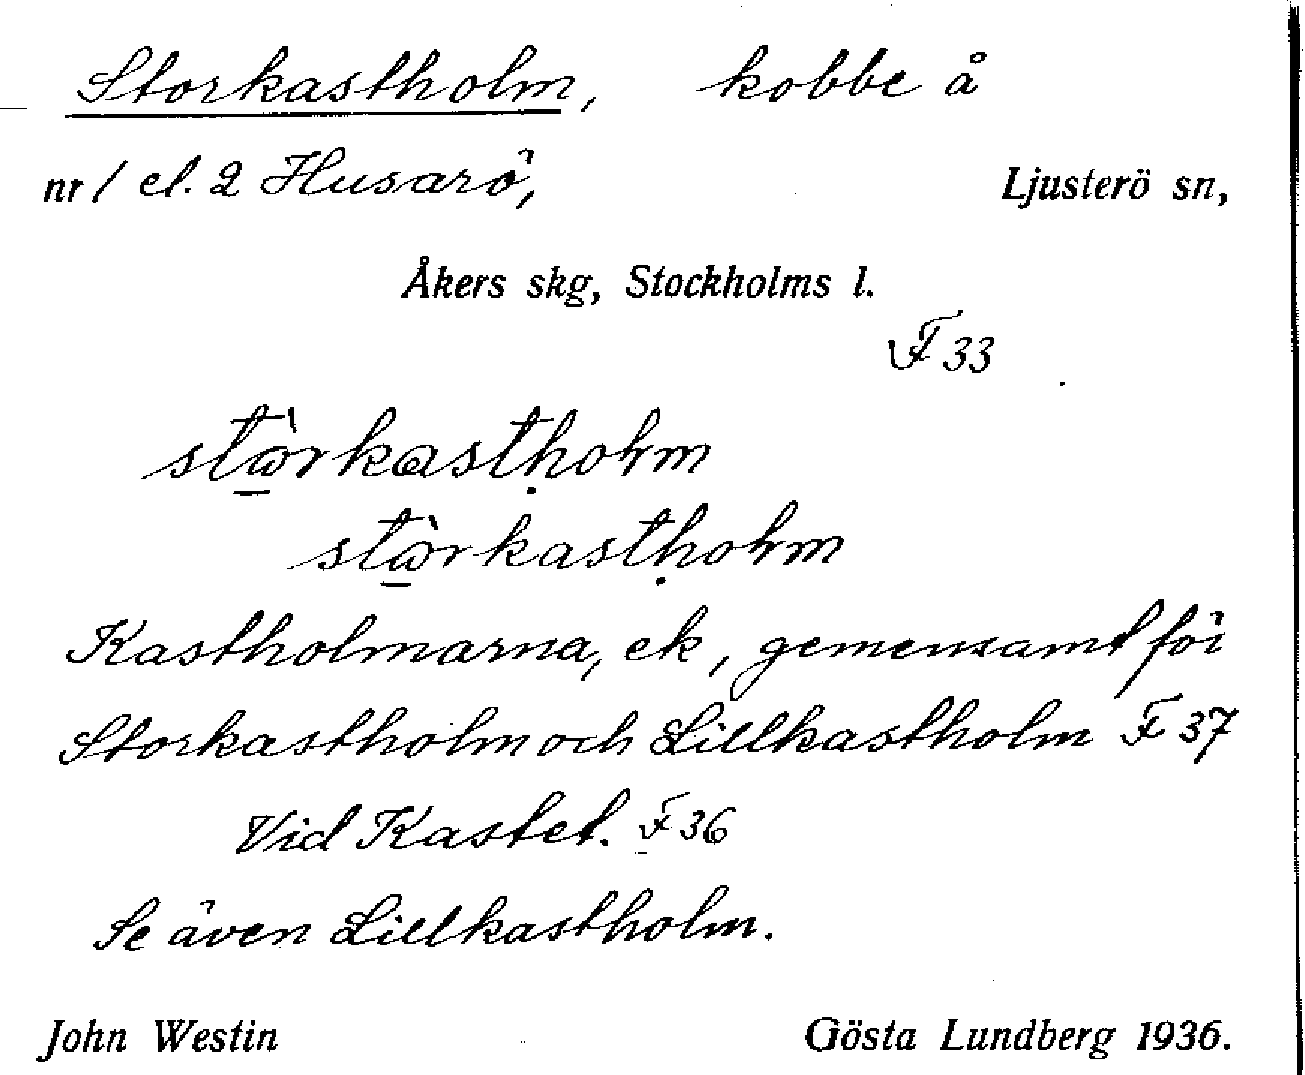 Storkastholm, kobbe å
nr 1 el. 2 Husarö, Ljusterö sn,
Åkers skg, Stockholms l.
F 33
stὼrkastholm
stὼrkastholm
Kastholmarna, ek, gemensamt för
Storkastholm och Lillkastholm F 37
Vid Kastet. F 36
Se även Lillkastholm.
John Westin Gösta Lundberg 1936.